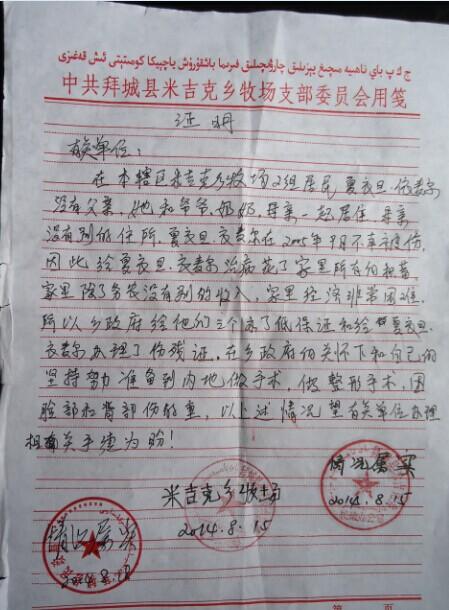 ج ك پ باي ناھىيە مىچىغ يېزىلىق چارۋىچىلىق فېرما ياچېيكا كومىتېتى ئىش قەغىزى
中共拜城县米吉克乡牧场支部委员会用笺
证明
有关单位：
在本辖区米吉克乡牧场2组居民夏衣旦·依麦尔
没有父亲，她和爷爷、奶奶、母亲一起居住，母亲
没有别的住所，夏衣旦·衣麦尔在2005年9月不幸被烧伤，
因此给夏衣旦·衣麦尔治病花了家里所有的积蓄，
家里除了务农没有别的收入，家里经济非常困难，
所以乡政府给他们三个办了低保证和给夏衣旦·
衣麦尔办理了伤残证，在乡政府的关怀下和自己的
坚持努力准备到内地做手术，做整形手术，因
脸部和背部伤的重，以上述情况望有关单位办理
相关手续为盼！
情况属实
2014.8.15
米吉克乡牧场
2014.8.15
情况属实